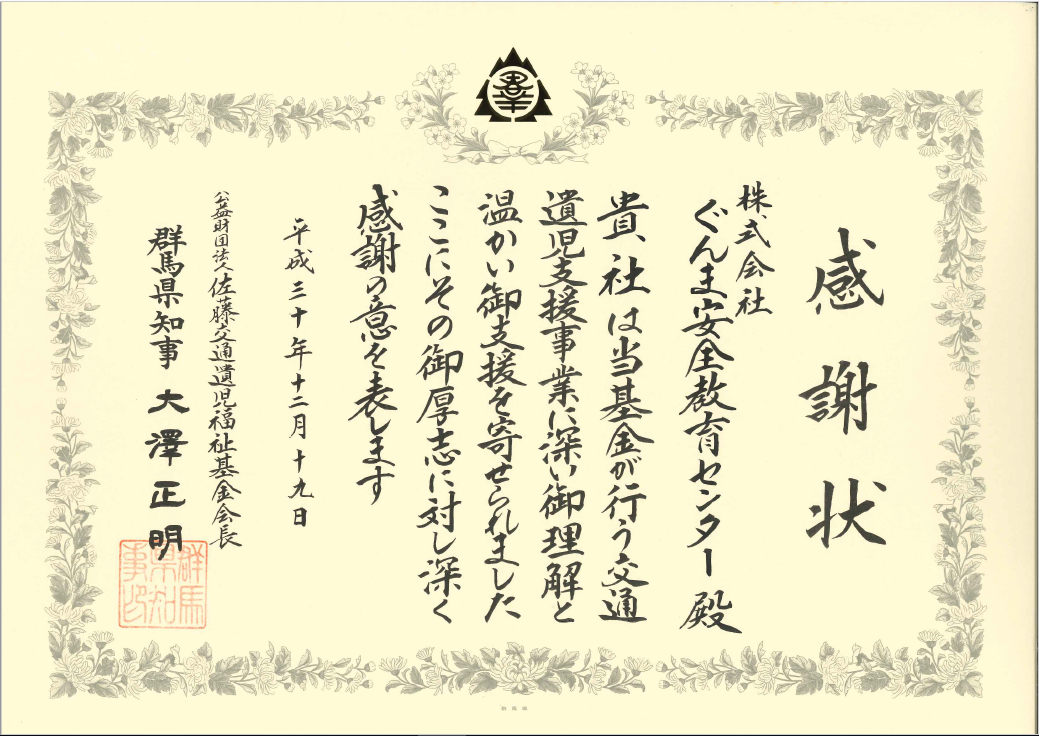 感謝状
株式会社
ぐんま安全教育センター 殿
貴社は当基金が行う交通
遺児支援事業に深い御理解と
温かい御支援を寄せられました
ここにその御厚志に対し深く
感謝の意を表します
平成三十年十二月十九日
公益財団法人佐藤交通遺児福祉基金会長
群馬県知事 大澤正明
群馬県知事印